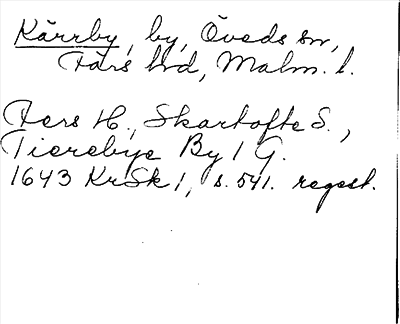 Kärrby, by, Öveds sn,
Färs hd, Malm. l.
Fers H., Skartofte S.,
Tierebye By 1 G.
1643 KrSk 1, s. 541. regest.